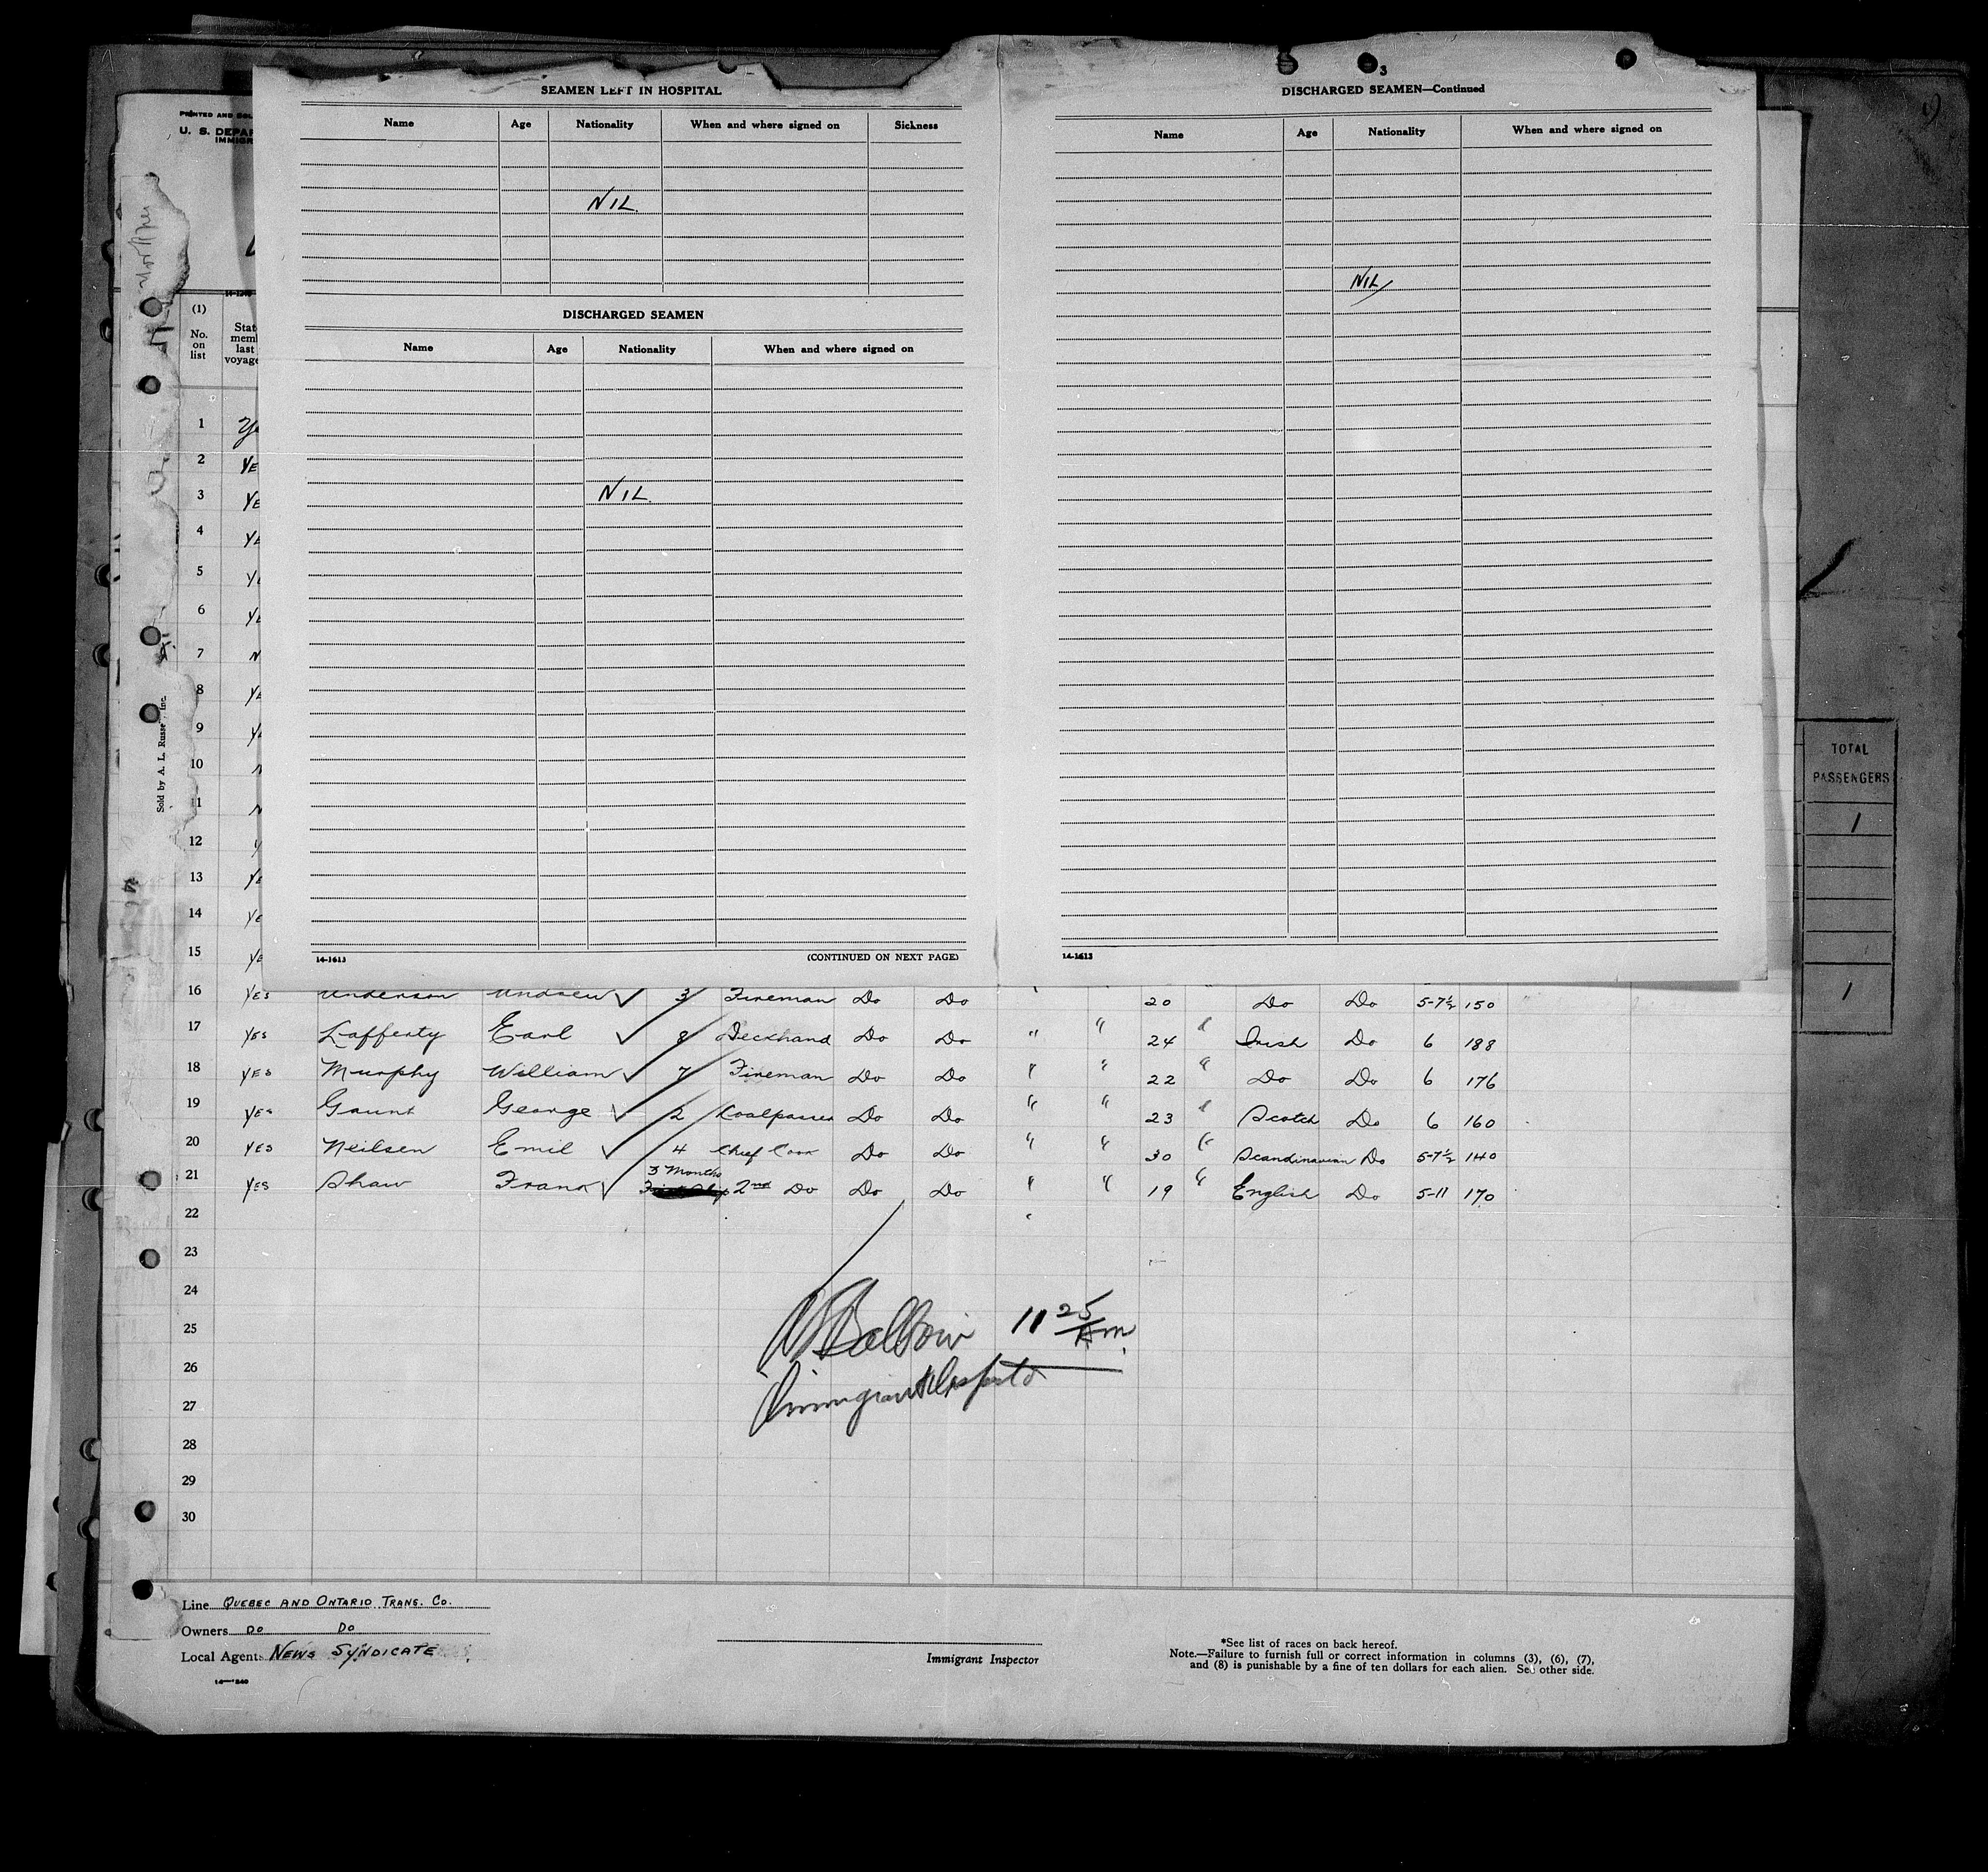 SEAMEN LEFT IN HOSPITAL
Name Age Nationality When and where signed on Sickness
NIL
DISCHARGED SEAMEN
Name Age Nationality When and where signed on
NIL
14-1613 (CONTINUED ON NEXT PAGE)
3
DISCHARGED SEAMEN—Continued
Name Age Nationality When and where signed on
NIL
14-1613
PRINTED AND
U. S.
(1)
No.
on
list
last
1
2 YE
3 YE
4 YE
5
6
7 N
8 YE
9
10
11
12
13 YE
14 YE
15 YE
Sold by A. L. Inc.
16 YES Anderson Andrew ✓ 3 Fireman Do Do " 20 Do Do 5-7½ 150
17 YES Lafferty Earl ✓ 8 Deckhand Do Do " " 24 " Irish Do 6 188
18 YES Murphy William ✓ 7 Fireman Do Do " " 22 " Do Do 6 176
19 YES Gaunt George ✓ 2 Coalpasser Do Do " " 23 " Scotch Do 6 160
20 YES Neilsen Emil ✓ 4 Chief Cook Do Do " " 30 " Scandinavian Do 5-7½ 140
21 YES Shaw Frank ✓ 3 Months 2nd Do Do Do " " 19 " English Do 5-11 170
22
23
24
25
26
27
28
29
30
11 25 Am
TOTAL
PASSENGERS
1
1
Line Quebec and Ontario Trans. Co.
Owners Do Do
Local Agents News Syndicate
Immigrant Inspector
*See list of races on back hereof.
Note.—Failure to furnish full or correct information in columns (3), (6), (7),
and (8) is punishable by a fine of ten dollars for each alien. See other side.